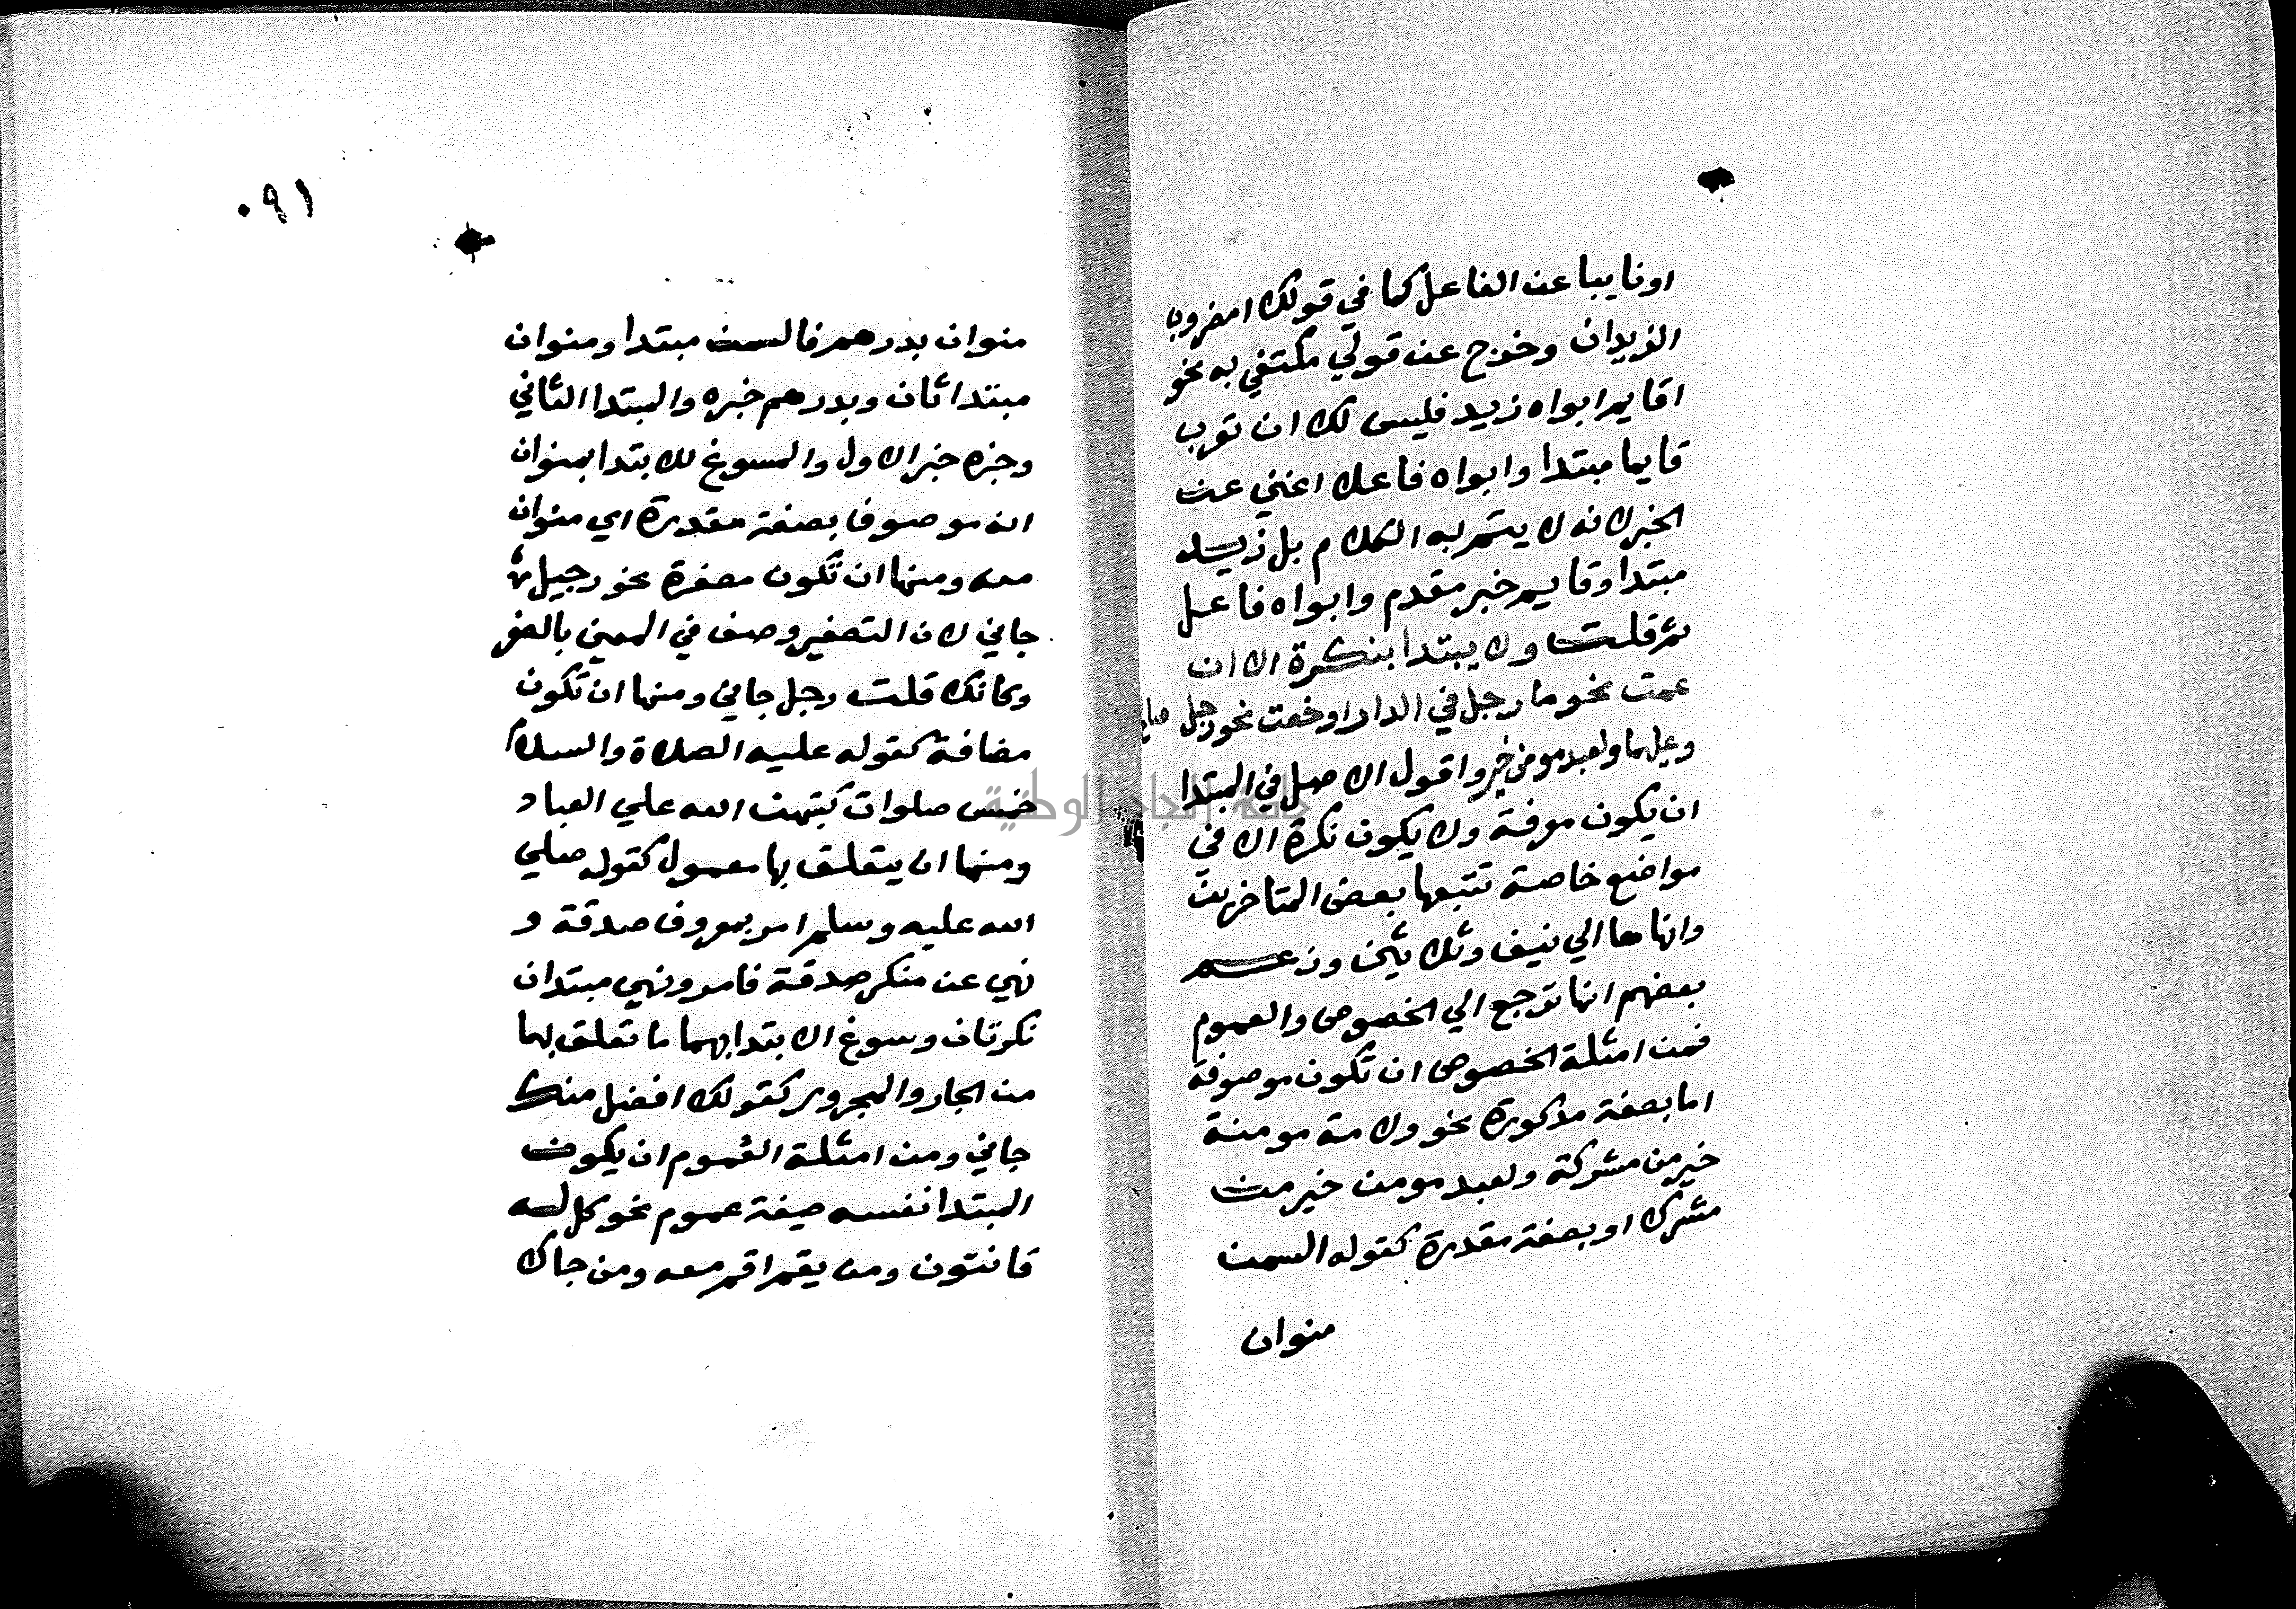 اونايبا عن الفاعل كما في قولك امضروب
الزيدان وخرج عن قولي مكتفي به نحو
اقايم ابواه زيد فليس لك ان تعرب
قايما مبتدا وابواه فاعلا اغني عن
الخبر لانه لا يتم به الكلام بل زيد
مبتدا وقايم خبر مقدم وابواه فاعل
ثم قلت ولا يبتدا بنكرة الا ان
عمت نحو ما رجل في الدار او خصت نحو رجل صالح
وعليهما ولعبد مومن خير واقول الاصل في المبتدا
ان يكون معرفة ولا يكون نكرة الا في
مواضع خاصة تتبعها بعض المتاخرين
وانهاها الي نيف وثلاثين وزعم
بعضهم انها ترجع الي الخصوص والعموم
فمن امثلة الخصوص ان تكون موصوفة
اما بصفة مذكورة نحو ولامة مومنة
خير من مشركة ولعبد مومن خير من
مشرك او بصفة مقدرة كقوله السمن
منوان
٠٩١
منوان بدرهم فالسمن مبتدا ومنوان
مبتدا ثان وبدرهم خبره والمبتدا الثاني
وخبره خبر الاول والمسوغ للابتدا بمنوان
انه موصوف بصفة مقدرة اي منوان
منه ومنها ان تكون مصغرة نحو رجيل
جاني لان التصغير وصف في المعني بالصغر
وكانك قلت رجل جاني ومنها ان تكون
مضافة كقوله عليه الصلاة والسلام
خمس صلوات كتبهن الله علي العباد
ومنها ان يتعلق بها معمول كقوله صلي
الله عليه وسلم امر بمعروف صدقة و
نهي عن منكر صدقة فامر ونهي مبتدان
نكرتان وسوغ الابتدا بهما ما تعلق بهما
من الجار والمجرور كقولك افضل منك
جاني ومن امثلة العموم ان يكون
المبتدا نفسه صيغة عموم نحو كل له
قانتون ومن يقم اقم معه ومن جاك